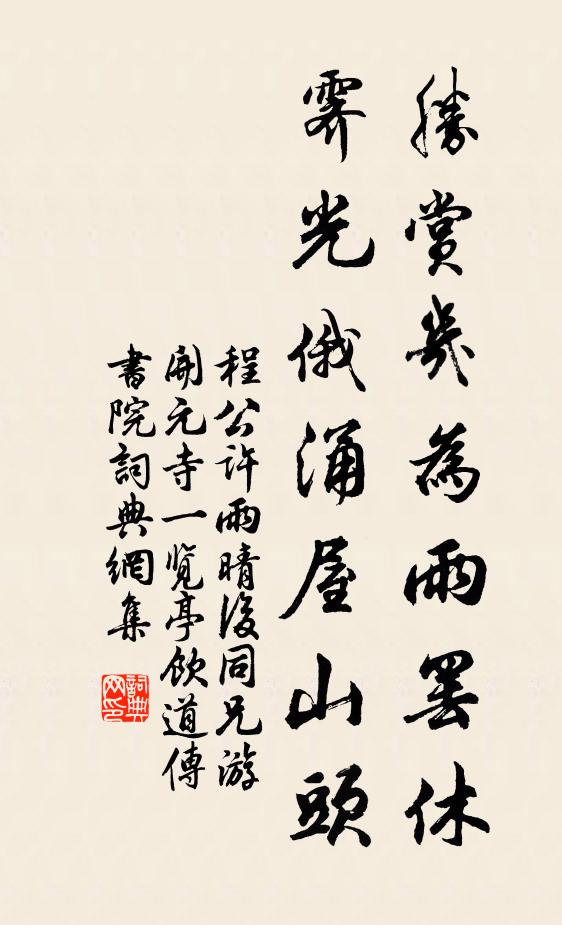 勝賞幾為雨罷休
霽光俄涌屋山頭
程公許雨晴後同兄游
開元寺一覽亭飲道傳
書院詞典網集
詞典网印